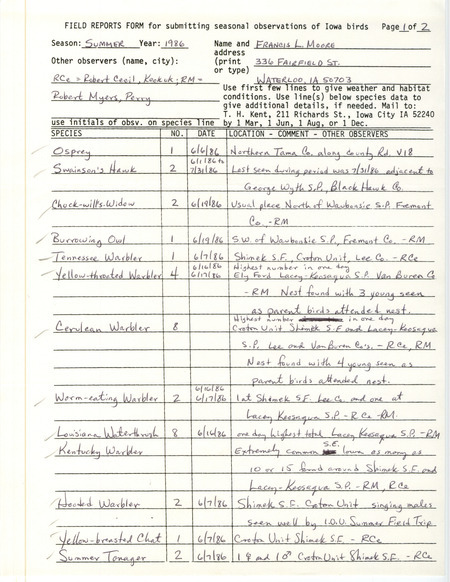 FIELD REPORTS FORM for submitting seasonal observations of Iowa birds Page 1 of 2
Season: SUMMER Year: 1986 Name and FRANCIS L. MOORE
address
Other observers (name, city): (print 336 FAIRFIELD ST.
or type)
RCe = Robert Cecil, Keokuk; RM = WATERLOO, IA 50703
Robert Myers, Perry
Use first few lines to give weather and habitat
conditions. Use line(s) below species data to
give additional details, if needed. Mail to:
T. H. Kent, 211 Richards St., Iowa City IA 52240
use initials of obsv. on species line by 1 Mar, 1 Jun, 1 Aug, or 1 Dec.
SPECIES NO. DATE LOCATION - COMMENT - OTHER OBSERVERS
Osprey 1 6/6/86 Northern Tama Co. along County Rd. V18
6/1/86 to
Swainson's Hawk 2 7/31/86 Last seen during period was 7/31/86 adjacent to
George Wyth S.P., Black Hawk Co.
Chuck-will's-Widow 2 6/19/86 Usual place North of Waubonsie S.P. Fremont
Co. - RM
Burrowing Owl 1 6/19/86 S.W. of Waubonsie S.P., Fremont Co. - RM
Tennessee Warbler 1 6/7/86 Shimek S.F., Croton Unit, Lee Co. - RCe
6/16/86 Highest number in one day
Yellow-throated Warbler 4 6/17/86 Ely Ford Lacey-Keosaqua S.P. Van Buren Co
- RM Nest found with 3 young seen
as parent birds attended nest.
Highest number in one day
Cerulean Warbler 8 Croton Unit Shimek S.F. and Lacey-Keosaqua
S.P. Lee and Van Buren Co's. - RCe, RM
Nest found with 4 young seen as
parent birds attended nest.
6/16/86
Worm-eating Warbler 2 6/17/86 1 at Shimek S.F. Lee Co. and one at
Lacey Keosaqua S.P. - RCe - RM.
Louisiana Waterthrush 8 6/16/86 one day highest total Lacey Keosaqua S.P. - RM
S.E.
Kentucky Warbler Extremely common Iowa as many as
10 or 15 found around Shimek S.F. and
Lacey-Keosaqua S.P. - RM, RCe
Hooded Warbler 2 6/7/86 Shimek S.F. Croton Unit singing males
seen well by I.O.U. Summer Field Trip
Yellow-breasted Chat 1 6/7/86 Croton Unit Shimek S.F. - RCe
Summer Tanager 2 6/7/86 1♀ and 1♂ Croton Unit Shimek S.F. - RCe